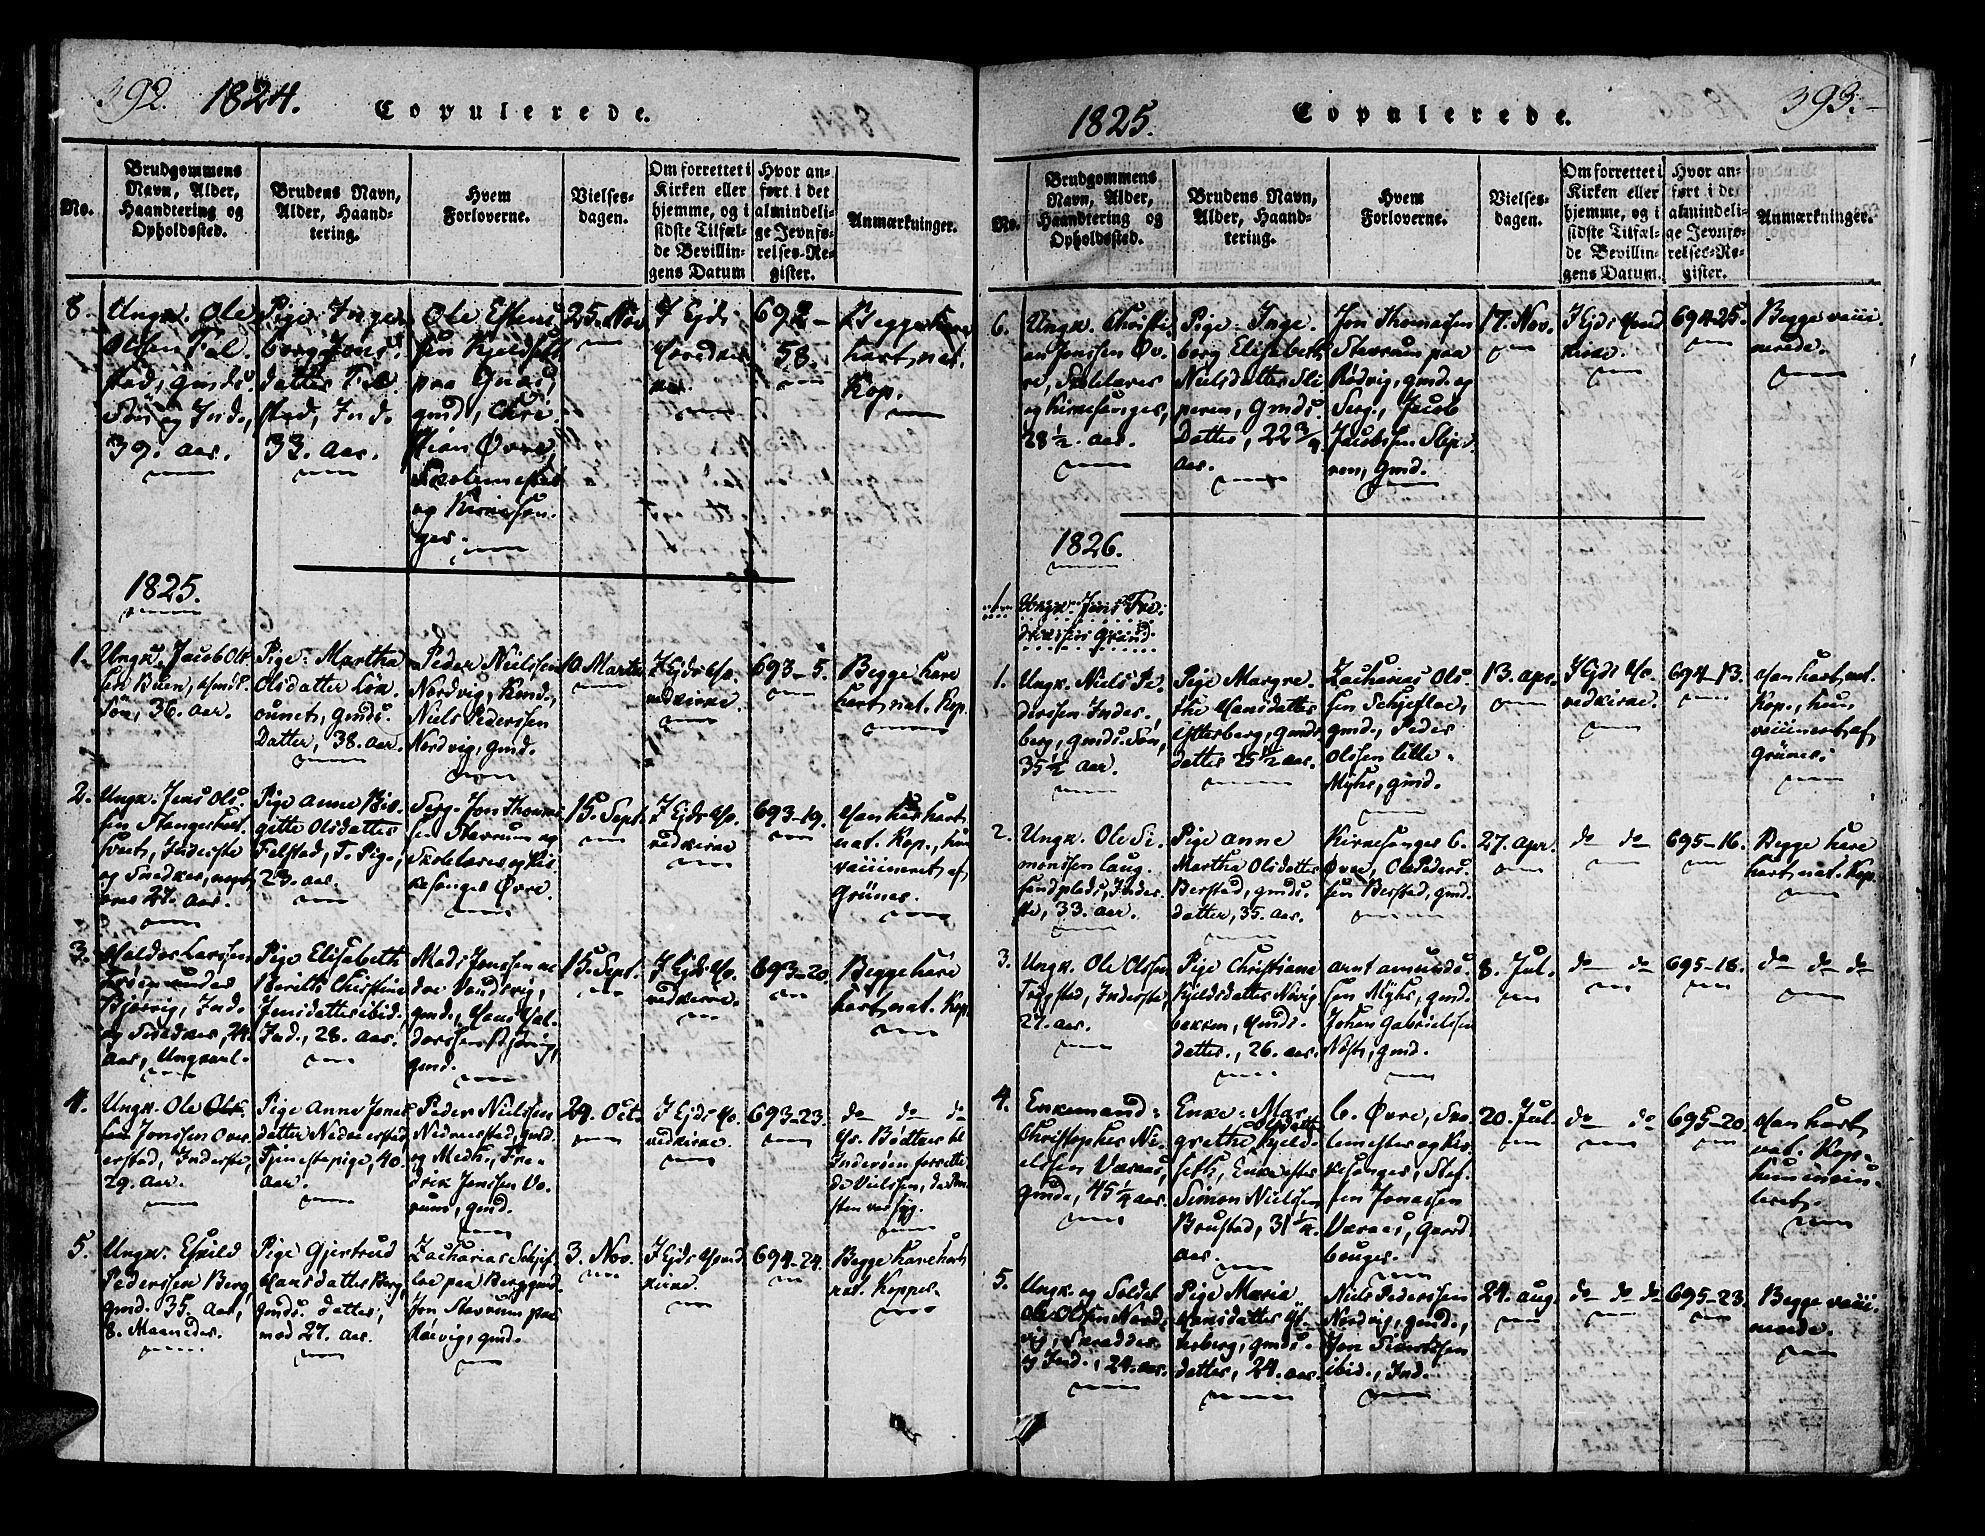 392. 1824. Copulerede.
No.
Brudgommens
Navn, Alder,
Haandtering og
Opholdssted.
Brudens Navn,
Alder, Haand-
tering.
Hvem
Forloverne.
Vielses-
dagen.
Om forrettet i
Kirken eller
hjemme, og i
sidste Tilfæl-
de Bevillin-
gens Datum
Hvor an-
ført i det
almindeli-
ge Jevnfø-
relses-Re-
gister.
Anmærkninger.
8.
Ungk. Ole
Olssen Fel
stad, gmds
Søn og Ind.,
39. aar.
Pige Inge
borg Jons
datter Fel
stad, Ind.
33. aar.
Ole Estens
sen Kjeldset
paa
gmd, Chri
stian Øvre,
Skolemester
og Kirkesan-
ger.
25. Nov.
I Ejds
Hovedkir
ke.
692-
58.
Begge have
havt nat.
Kop.
1825.
1.
Ungk. Jacob Ols
sen Buen, Gmds.
Søn, 36. aar.
Pige Martha
Olsdatter Løv
ounet, gmds.
Datter, 38. aar.
Peder Nielssen
Nordvig, Gmd.,
Niels Pederssen
Nordvig, gmd.
10. Martii
I Ejds Ho-
vedkirke.
693-5.
Begge have
havt nat. Kop.
2.
Ungk. Jens Ols
sen Stangerholt
, Inderste
og Snedker,
27. aar.
Pige Anne Bir
gitte Olsdatter
Felstad, T. Pige,
23. aar.
Serg. Jon Thomes
sen Stavrum og
Skolelærer og Kir
kesanger Øvre.
15. Sept.
I Ejds Ho-
vedkirke
693-19.
Han har havt
nat. Kop., hun
vaccineret af
Grüner.
3.
Haldor Larssen
under
Bjørvig, Ind.
og Snedker, 24.
aar, Ungkarl.
Pige Elisabeth
Berith Christine
Jensdatter ibid.
Ind., 28. aar.
Mads Jonssen ne
dre Vandvig,
gmd., Hans Hal
dorssen Bjørvig,
gmd.
15. Sept.
I Ejds Ho-
vedkirke.
693-20
Begge have
havt nat. Kop.
4.
Ungk. Ole Ols.
sen Jonssen Over
erstad, Inderste,
29. aar.
Pige Anne Jons
datter Nedreerstad
Tjenestepige, 40.
aar.
Peder Nielssen
Nedreerstad, gmd.
og Medh., Fre-
drik Jenssen Vo-
rum, gmd.
29. Oct.
I Ejds Ho-
vedkirke.
693-23.
do do do
Hr. Bødtker til
Inderøen forrette
de Vielsen, da Præ
sten var syg.
5.
Ungk. Eskild
Pederssen Berg
gmd. 35. aar,
8. Maaneder.
Pige Gjertrud
Hansdatter Berg,
gmds. datter,
med 27. aar.
Zacharias Schjef
loe paa Berg gmd.
Jon Stavrum paa
Rødvig, gmd.
3. Nov.
I Ejds Hoved
kirke.
694-24.
Begge have havt
nat. Kopper.
1825. Copulerede. 393.
No.
Brudgommens
Navn, Alder,
Haandtering og
Opholdssted.
Brudens Navn,
Alder, Haand-
tering.
Hvem
Forloverne.
Vielses-
dagen.
Om forrettet i
Kirken eller
hjemme, og i
sidste Tilfæl-
de Bevillin-
gens Datum.
Hvor an-
ført i det
almindeli-
ge Jevnfø-
relses-Re-
gister.
Anmærkninger.
6.
Ungk. Christi
an Jonssen Øv-
re, Skolelærer
og Kirkesanger,
28 1/2. aar.
Pige Inge
borg Elisabeth
Nielsdatter Sli
peren, Gmds.
Datter, 22 3/4
aar.
Jon Thomessen
Stavrum paa
Rødvig, gmd. og
Serg., Jacob
Jacobssen Slipe
ren, Gmd.
17. Nov.
I Ejds Hoved
kirke.
694-25.
Begge vacci-
nerede.
1826.
1.
Ungk. Jens Fre
drikssen Grand.
1.
Ungk. Niels Pe-
derssen Inder
berg, gmds. Søn,
35 1/2 aar.
Pige Margre
the Hansdatter
Ytterberg, gmds.
datter 25 1/2 aar.
Zacharias Ols
sen Schjefloe,
gmd., Peder
Olssen lille-
Myhr, gmd.
13. apr.
I Ejds Ho-
vedkirke.
694-13.
Han havt nat.
Kop., hun
vaccineret af
Grüner.
2.
Ungk. Ole Si-
monssen Laug
sandplads, Inder
ste, 33. aar.
Pige Anne
Martha Olsdatter
Berstad, gmds.
datter, 35. aar.
Kirkesanger C.
Øvre, Ole Peders
sen Berstad, gmd.
27. apr.
do do
695-16.
Begge have
havt nat. Kop.
3.
Ungk. Ole Olssen
Trøgstad, Inderste,
27. aar.
Pige Christiane
Kjeldsdatter Norvig
bakken, Gmds.
datter, 26. aar.
Arnt Amunds
sen Myhr, gmd.
Johan Gabrielssen
Nøst, gmd.
8. Jul.
do do
695-18.
do do do
4.
Enkemand
Christopher Ni-
elssen Værnes,
gmd., 45 1/4 aar.
Enke Mar
grethe Olsdatt.
Kjeld-
seth, Enke efter
Simon Nielssen
Brustad, 31 1/2.
aar.
C. Øvre, Sko
lemester og Kir
kesanger, Stef
fen Jonassen
Værnes, gaard
bruger.
20. Jul.
do do
695-20.
Han havt
nat. Kop.
hun inocu-
leret.
5.
Ungk. og Soldat
Ole Olssen Nord
vig, Skrædder
og Ind., 24. aar.
Pige Maria
Hansdatter Yt-
terberg, gmds.
datter, 24. aar.
Niels Pederssen
Nordvig, gmd.,
Jon Sivertssen
ibid., Ind.
24. aug.
do do do
695-23.
Begge vacci-
nerede.